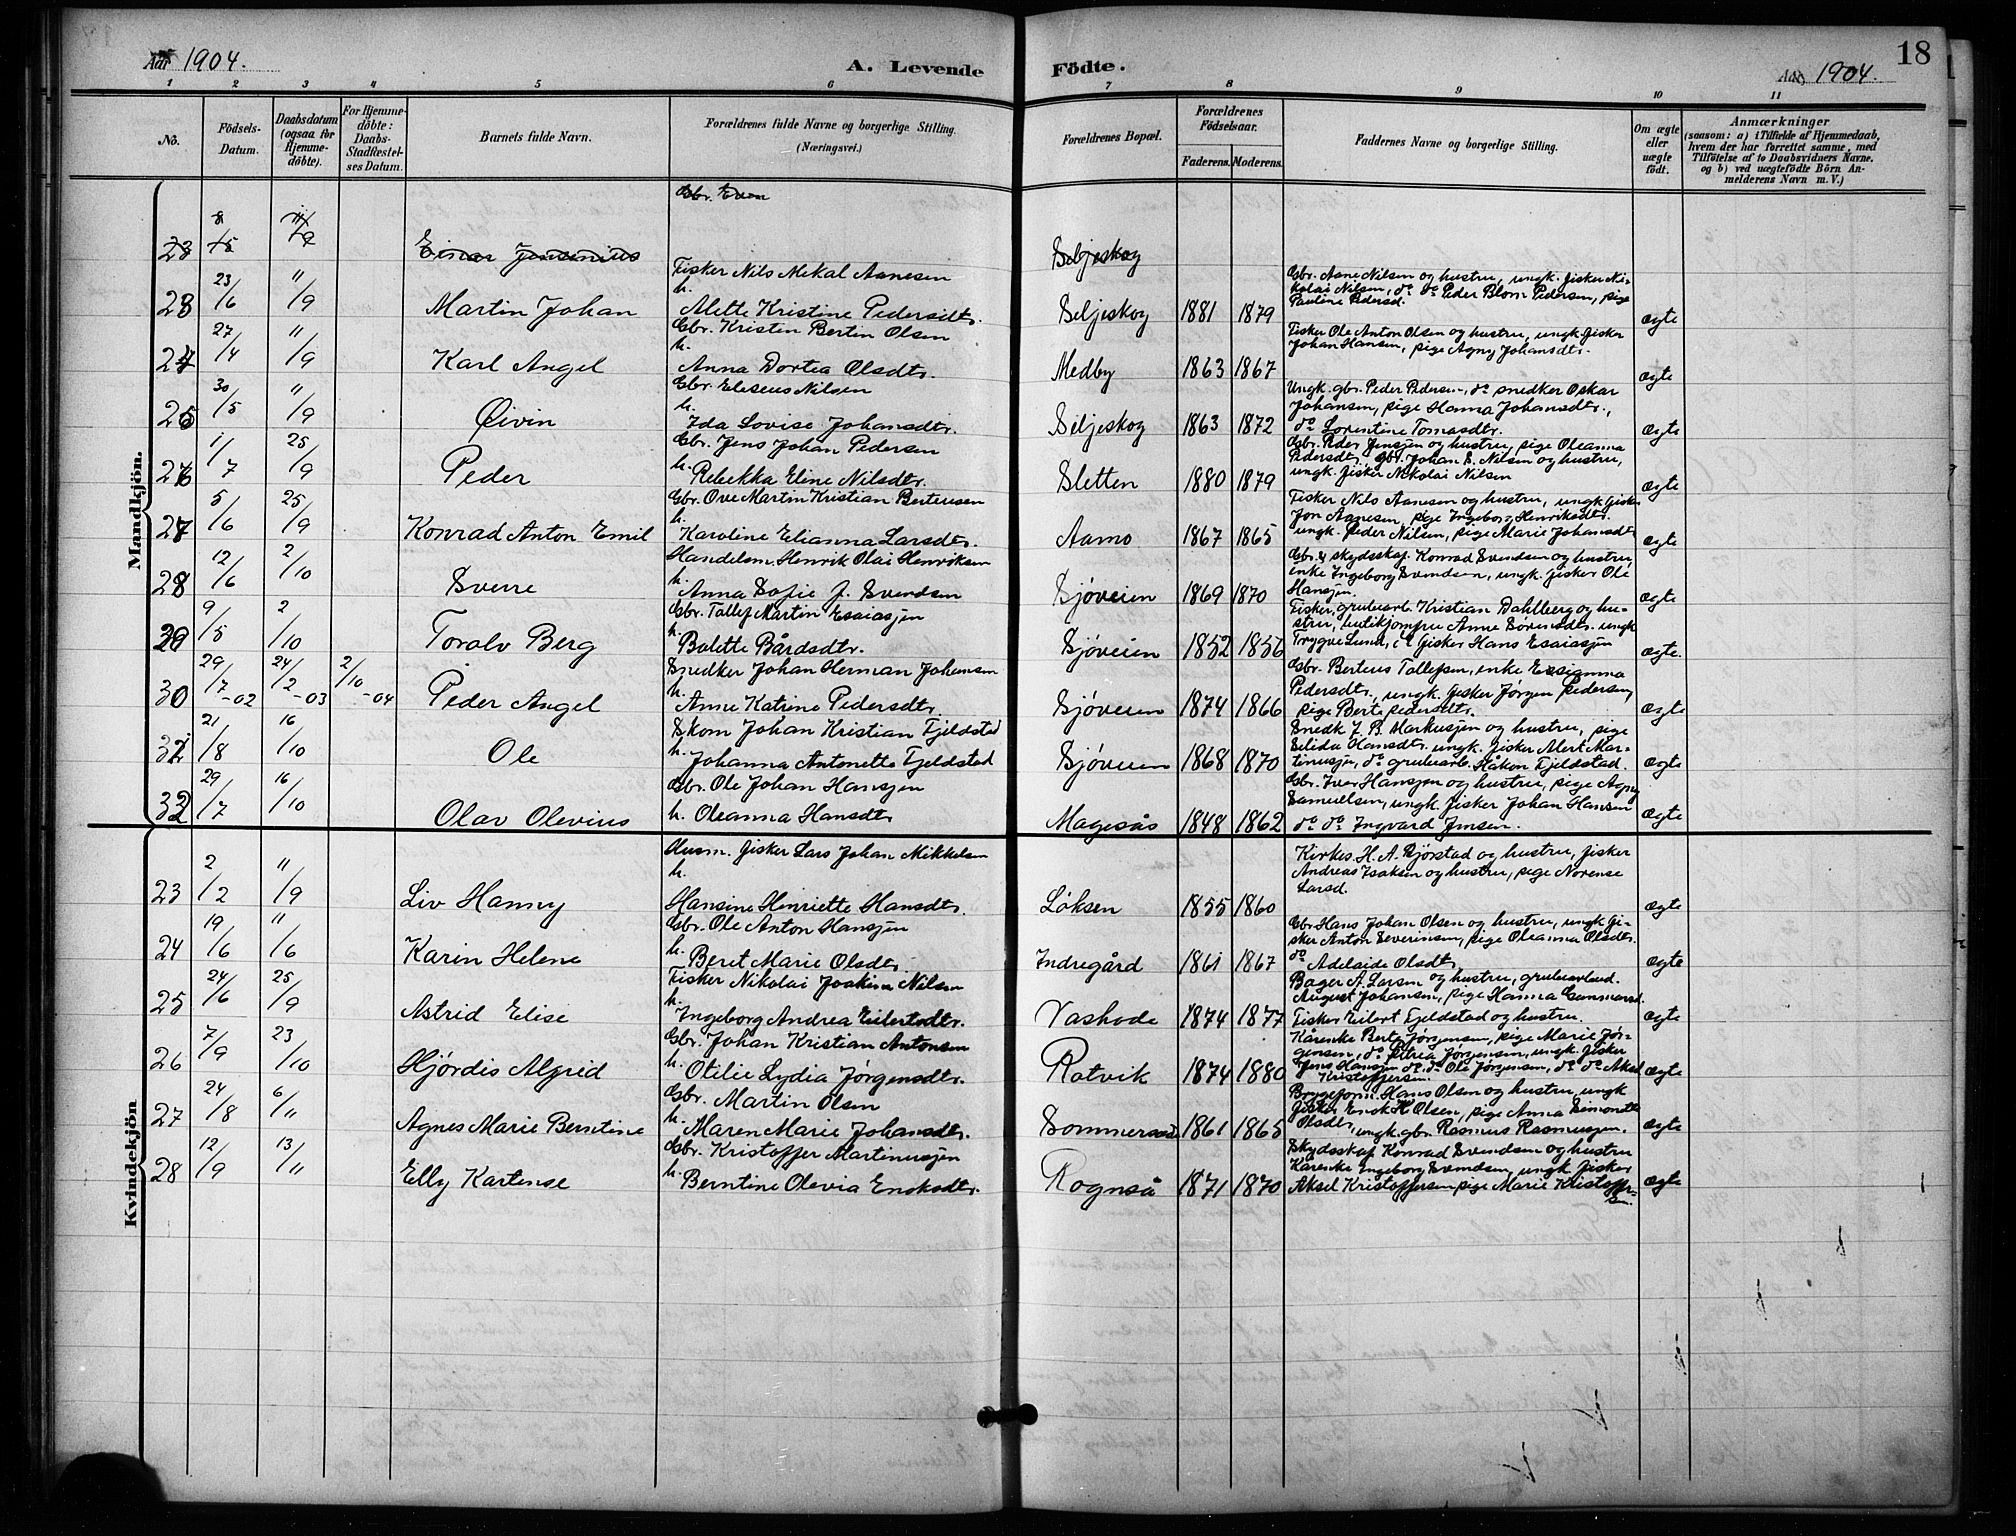 Aar 1904.
A. Levende
Födte.
Aar 1904.
18
1 2 3 4 5 6 7 8 9 10 11
No.
Födsels-
Datum.
Daabsdatum
(ogsaa for
Hjemme-
döbte).
For Hjemme-
döbte:
Daabs-
Stadfæstel-
ses Datum.
Barnets fulde Navn.
Forældrenes fulde Navne og borgerlige Stilling.
(Næringsvei.)
Forældrenes Bopæl.
Forældrenes
Födselsaar.
Faderens. Moderens.
Faddernes Navne og borgerlige Stilling.
Om ægte
eller
uægte
födt.
Anmærkninger
(saasom: a) i Tilfælde af Hjemmedaab,
hvem der har forrettet samme, med
Tilföielse af to Daabsvidners Navne,
og b) ved uægtefödte Börn An-
melderens Navn m. V.)
Mandkjön.
Gbr. Even
23 Einar Jensenius Seljeskog
23 23/6 11/9 Martin Johan
Fisker Nils Mekal Aanesen
h. Alette Kristine Pedersdtr.
Seljeskog 1881 1879
Gbr. Aane Nilsen og hustru, ungk. fisker Ni-
kolai Nilsen, do do Peder Blom Pedersen, pige
Pauline Pedersd.
ægte
24 27/4 11/9 Karl Angel
Gbr. Kristen Bertin Olsen
h. Anna Dortea Olsdtr.
Medby 1863 1867
Fisker Ole Anton Olsen og hustru, ungk. fisker
Johan Hansen, pige Agny Johansdtr.
ægte
25 30/5 11/9 Øivin
Gbr. Eliseus Nilsen
h. Ida Lovise Johansdtr.
Seljeskog 1863 1872
Ungk. gbr. Peder Pedersen, do snedker Oskar
Johansen, pige Hanna Johansdtr.,
do Lorentine Tomasdtr.
ægte
26 1/7 25/9 Peder
Gbr. Jens Johan Pedersen
h. Rebekka Eline Nilsdtr.
Sletten 1880 1879
Gbr. Peder Jensen og hustru, pige Oleanna
Pedersdt. gbr. Johan S. Nilsen og hustru,
ungk. fisker Nikolai Nilsen
ægte
27 5/6 25/9 Konrad Anton Emil
Gbr. Ove Martin Kristian Berteusen
h. Karoline Elianna Larsdtr.
Aamo 1867 1865
Fisker Nils Aanesen og hustru, ungk. fisker
Jon Aanesen, pige Ingeborg Henriksdtr.
ungk. Peder Nilsen, pige Marie Johansdt
ægte
28 12/6 2/10 Sverre
Handelsm. Henrik Olai Henriksen
h. Anna Sofie f. Svendsen
Sjøveien 1869 1870
Gbr. & skydsskaf. Konrad Svendsen og hustru,
enke Ingeborg Svendsen, ungk. fisker Ole
Hansen.
ægte
29 9/5 2/10 Toralv Berg
Gbr. Tallef Martin Esaiassen
h. Bolette Bårdsdtr.
Sjøveien 1852 1856
Fisker, grubearb. Kristian Dahlberg og hu-
stru, butikjomfru Anne Sørensdtr. ungk
Trygve Lund, fisker Hans Esaiassen
ægte.
30 29/7-02 24/2-03 2/10-04 Peder Angel
Snedker Johan Herman Johansen
h. Anne Katrine Pedersdtr.
Sjøveien 1874 1866
Gbr. Berteus Tallefsen, enke Esianna
Pedersdtr., ungk. fisker Jørgen Pedersen,
pige Berte Pedersdtr.
ægte
31 21/8 16/10 Ole
Skom Johan Kristian Fjeldstad
h. Johanna Antonette Fjeldstad
Sjøveien 1868 1870
Snedk J. B. Markussen og hustru, pige
Selida Hansdtr. ungk. fisker Mart Mar-
tinussen, do grubearb. Håkon Fjeldstad.
ægte
32 29/7 16/10 Olav Olevius
Gbr. Ole Johan Hansen
h. Oleanna Hansdtr
Magesås 1848 1862
Gbr. Iver Hansen og hustru, pige Agny
Samuelsen, ungk. fisker Johan Hansen
do do Ingvard Jensen.
ægte
Kvindekjön
23 2/2 11/9 Liv Hanny
Husm. fisker Lars Johan Mikkelsen
h. Hansine Henriette Hansdtr.
Løksen 1855 1860
Kirkes. H. A. Bjørstad og hustru, fisker
Andreas Isaksen og hustru, pige Norense
Larsd.
ægte
24 19/6 11/6 Karin Helene
Gbr. Ole Anton Hansen
h. Beret Marie Olsdtr.
Indregård 1861 1867
Gbr. Hans Johan Olsen og hustru, ungk. fi-
sker Anton Severinsen, pige Oleanna Olsdtr.
do Adelaide Olsdtr
ægte
25 24/6 25/9 Astrid Elise
Fisker Nikolai Joakim Nilsen
h. Ingeborg Andrea Eilertsdtr.
Vashode 1874 1877
Bager A. Larsen og hustru, grubearbeid.
August Johansen, pige Hanna Gunnarsd.
Fisker Eilert Fjeldstad og hustru.
ægte
26 7/9 23/10 Hjørdis Alfrid
Gbr. Johan Kristian Antonsen
h. Otilie Lydia Jørgensdtr.
Rotvik 1874 1880
Kårenke Berte Jørgensen, pige Marie Jør-
gensen, do Petrea Jørgensen, ungk. fisker
Jens Hansen do do Ole Jørgensen, do do Aksel
Kristoffersen.
ægte
27 24/8 6/11 Agnes Marie Berntine
Gbr. Martin Olsen
h. Maren Marie Johansdtr.
Sommersæt 1861 1865
Bryggeform. Hans Olsen og hustru, ungk
fisker Enok H Olsen, pige Anna Simonette
Olsdtr, ungk. gbr. Rasmus Rasmussen.
ægte
28 12/9 13/11 Elly Kartense
Gbr. Kristoffer Martinussen
h. Berntine Olevia Enoksdtr.
Rognså 1871 1870
Skydsskaf Konrad Svendsen og hustru
Kårenke Ingeborg Svendsen, ungk fisker
Aksel Kristoffersen pige Marie Kristoffer-
sen.
ægte